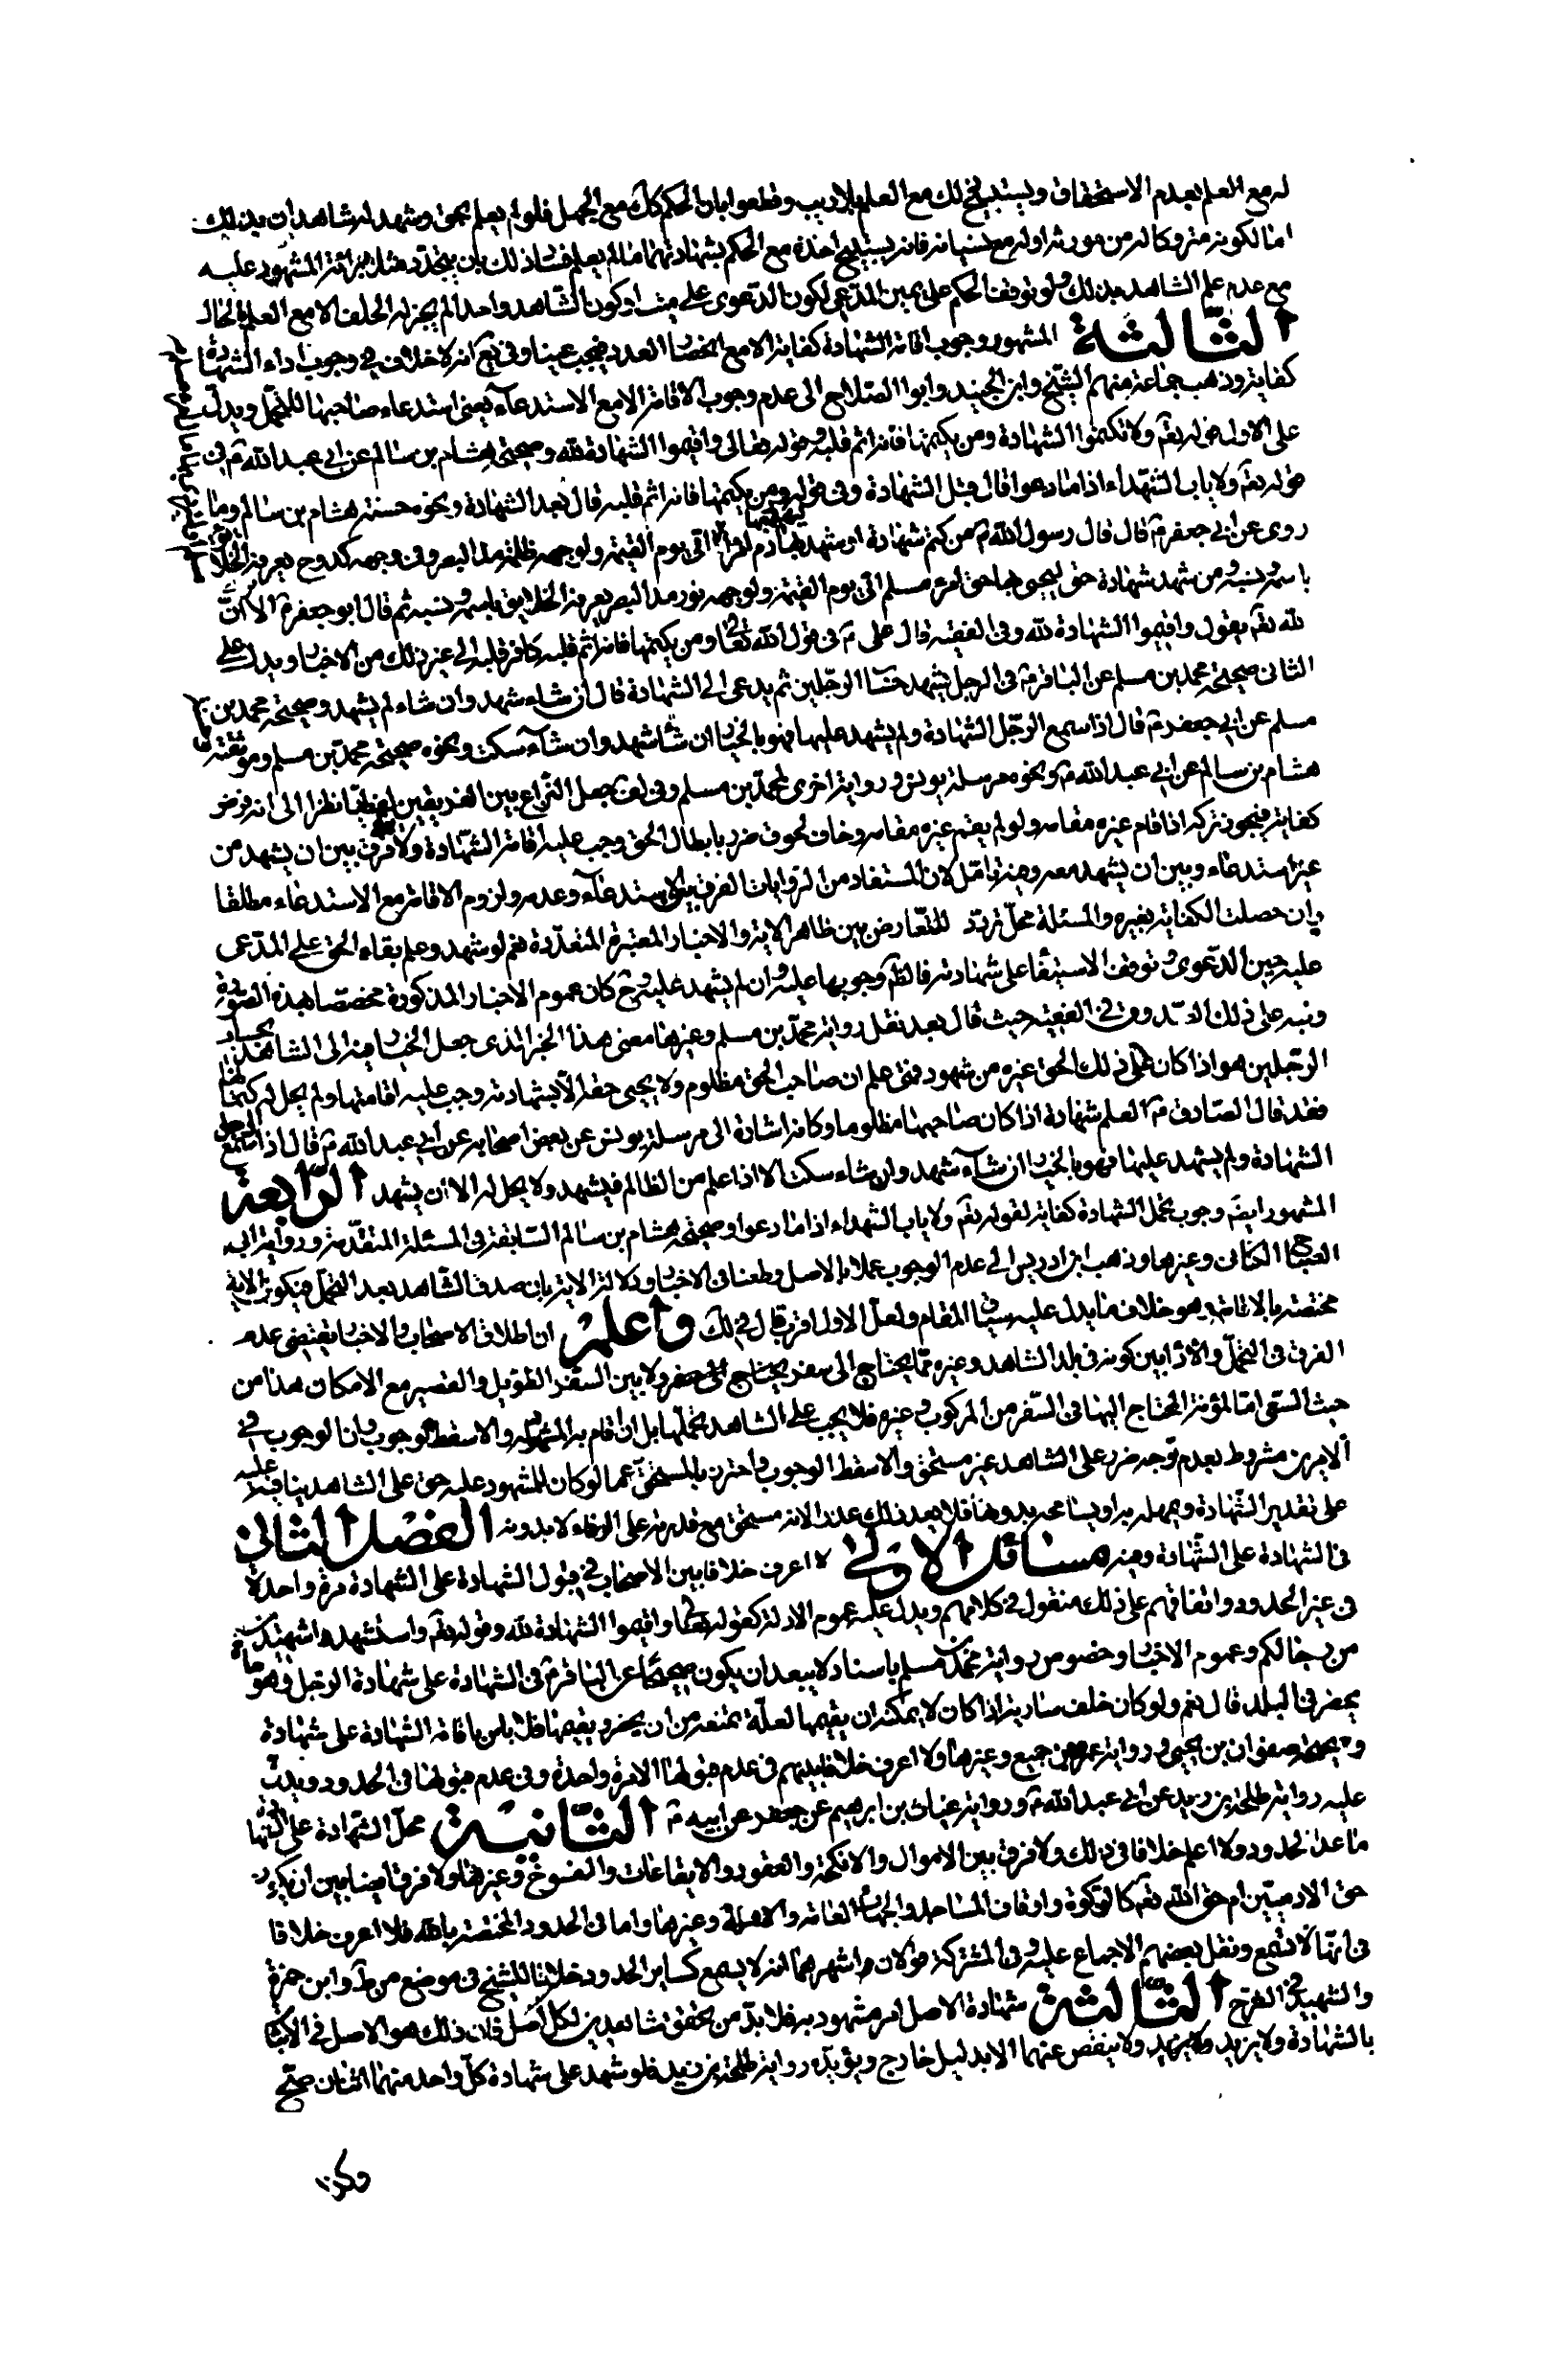 له مع العلم بعدم الاستحقاق ويستبيح ذلك مع العلم بلا ريب وقطعوا بان الحكم كك مع الجهل فلو لم يعلم بحق وشهد له شاهدان بذلك
اما لكونه متروكا له من مورثه او له مع نسيانه فانه يستبيح اخذه مع الحكم بشهادتهما ما لم يعلم فساد ذلك بان يتجدد مثلا براءة المشهود عليه
مع عدم علم الشاهد بذلك ولو توقف الحكم على يمين المدعى لكون الدعوى على ميت او كون الشاهد واحدا لم يجز له الحلف الا مع العلم بالحال
الثالثة المشهور وجوب اقامة الشهادة كفاية الا مع انحصار العدد فيجب عينا وفى يع انه لا خلاف فى وجوب اداء الشهادة
كفاية وذهب جماعة منهم الشيخ وابن الجنيد وابوا الصلاح الى عدم وجوب الاقامة الا مع الاستدعاء يعنى استدعاء صاحبها للتحمل ويدل
على الاول قوله تعم ولا تكتموا الشهادة ومن يكتمها فانه اثم قلبه وقوله تعالى واقيموا الشهادة لله وصحيحة هشام بن سالم عن ابى عبد الله ع فى
قوله تعم ولا ياب الشهداء اذا ما دعوا قال قبل الشهادة وفى قوله ومن يكتمها فانه اثم قلبه قال بعد الشهادة ونحوه حسنة هشام بن سالم وما
روى عن ابى جعفر ع قال قال رسول الله ص من كتم شهادة او شهد بها ليهدر بها دم امرء اتى يوم القيمة ولوجهه ظلمة مد البصر وفى وجهه كدوح يعرفه الخلايق
باسمه ونسبه ومن شهد شهادة حق ليحيى بها حق امرء مسلم اتى يوم القيمة ولوجهه نور مد البصر يعرفه الخلايق باسمه ونسبه ثم قال ابو جعفر ع الا ان
لله تعم يقول واقيموا الشهادة لله وفى الفقيه قال على ع فى قول الله تعالى ومن يكتمها فانه اثم قلبه كافر قلبه الى غير ذلك من الاخبار ويدل على
الثانى صحيحة محمد بن مسلم عن الباقر ع فى الرجل يشهد حساب الرجلين ثم يدعى الى الشهادة قال ان شاء شهد وان شاء لم يشهد وصحيحة محمد بن
مسلم عن ابى جعفر ع قال اذا سمع الرجل الشهادة ولم يشهد عليها فهو بالخيار ان شاء شهد وان شاء سكت ونحوه صحيحة محمد بن مسلم وموثقته
هشام بن سالم عن ابى عبد الله ع ونحوه مرسلة يونس ورواية اخرى لمحمد بن مسلم وفى لف جعل النزاع بين الفريقين لفظيا نظرا الى انه فرض
كفاية فيجوز تركه اذا قام غيره مقامه ولو لم يقم غيره مقامه وخاف لحوق ضرر بابطال الحق وجب عليه اقامة الشهادة ولا فرق بين ان يشهد من
غير استدعاء وبين ان يشهد معه وفيه تامل لان المستفاد من الروايات الفرق بين الاستدعاء وعدمه ولزوم الاقامة مع الاستدعاء مطلقا
وان حصلت الكفاية بغيره والمسئلة محل تردد للتعارض بين ظاهر الاية والاخبار المعتبرة المتعددة نعم لو شهد وعلم بقاء الحق على المدعى
عليه حين الدعوى وتوقف الاستيفاء على شهادته فالظ وجوبها عليه وان لم يشهد عليه وح كان عموم الاخبار المذكورة مخصصا بهذه الصورة
ونبه على ذلك الصدوق فى الفقيه حيث قال بعد نقل رواية محمد بن مسلم وغيرها معنى هذا الخبر الذى جعل الخيار فيه الى الشاهد بحساب
الرجلين هو اذا كان على ذلك الحق غيره من شهود فمتى علم ان صاحب الحق مظلوم ولا يحيى حقه الا بشهادته وجب عليه اقامتها ولم يحل له كتمانها
فقد قال الصادق ع العلم شهادة اذا كان صاحبها مظلوما وكانه اشارة الى مرسلة يونس عن بعض اصحابه عن ابى عبد الله ع قال اذا سمع الرجل
الشهادة ولم يشهد عليها فهو بالخيار ان شاء شهد وان شاء سكت الا اذا علم من الظالم فيشهد ولا يحل له الا ان يشهد الرابعة
المشهور ايضا وجوب تحمل الشهادة كفاية لقوله تعم ولا ياب الشهداء اذا ما دعوا وصحيحة هشام بن سالم السابقة فى المسئلة المتقدمة ورواية ابى
الصباح الكنانى وغيرها وذهب ابن ادريس الى عدم الوجوب عملا بالاصل وطعنا فى الاخبار ودلالة الاية بان صدق الشاهد بعد التحمل فيكون الاية
مختصة بالاقامة وهو خلاف ما يدل عليه سياق المقام ولعل الاول اقرب قال فى لك واعلم ان اطلاق الاصحاب والاخبار يقتضى عدم
الفرق فى التحمل والاداء بين كونه فى بلد الشاهد وغيره مما يحتاج الى سفر يحتاج الى حضر ولا بين السفر الطويل والقصير مع الامكان هذا من
حيث السعى اما المؤنة المحتاج اليها فى السفر من المركوب وغيره فلا يجب على الشاهد تحملها بل ان قام بها المشهود له والا سقط الوجوب وان الوجوب فى
الامرين مشروط بعدم توجه ضرر على الشاهد غير مستحق والا سقط الوجوب واحترز بالمستحق عما لو كان للمشهود عليه حق على الشاهد يناقشه عليه
على تقدير الشهادة ويمهله به او يسامحه بدونها فلا يعد ذلك عذرا لانه مستحق مع قدرته على الوفاء لا بدونه الفصل الثانى
فى الشهادة على الشهادة وفيه مسائل الاولى لا اعرف خلافا بين الاصحاب فى قبول الشهادة على الشهادة مرة واحدة
فى غير الحدود واتفاقهم على ذلك منقول فى كلامهم ويدل عليه عموم الادلة كقوله تعالى واقيموا الشهادة لله وقوله تعم واستشهدوا شهيدين
من رجالكم وعموم الاخبار وخصوص رواية محمد بن مسلم باسناد لا يبعد ان يكون صحيحا عن الباقر ع فى الشهادة على شهادة الرجل وهو
يحضر فى البلد قال نعم ولو كان خلف سارية اذا كان لا يمكنه ان يقيمها لعلة تمنعه من ان يحضر ويقيمها فلا باس باقامة الشهادة على شهادة
وصحيحة صفوان بن يحيى ورواية عمرو بن جميع وغيرها ولا اعرف خلافا بينهم فى عدم قبولها الا مرة واحدة وفى عدم قبولها فى الحدود ويدل
عليه رواية طلحة بن زيد عن ابى عبد الله ع ورواية غياث بن ابرهيم عن جعفر عن ابيه ع الثانية محل الشهادة على الشهادة
ما عدا الحدود ولا اعلم خلافا فى ذلك ولا فرق بين الاموال والانكحة والعقود والايقاعات والفسوخ وغيرها ولا فرق ايضا بين ان يكون
حق الادميين ام حق الله تعم كالزكوة واوقاف المساجد والجهات العامة والاهلة وغيرها واما فى الحدود المختصة بالله فلا اعرف خلافا
فى انها لا تسمع ونقل بعضهم الاجماع عليه وفى المشتركة قولان اشهرهما انه لا يسمع كساير الحدود خلافا للشيخ فى موضع من ط وابن حمزة
والشهيد فى الشرح الثالثة شهادة الاصل امر مشهود به فلا بد من تحقق شاهدين لكل اصل فان ذلك هو الاصل فى الاثبات
بالشهادة ولا يزيد ولا ينقص عنهما الا بدليل خارج ويؤيده رواية طلحة بن زيد فلو شهد على شهادة كل واحد منهما اثنان صح